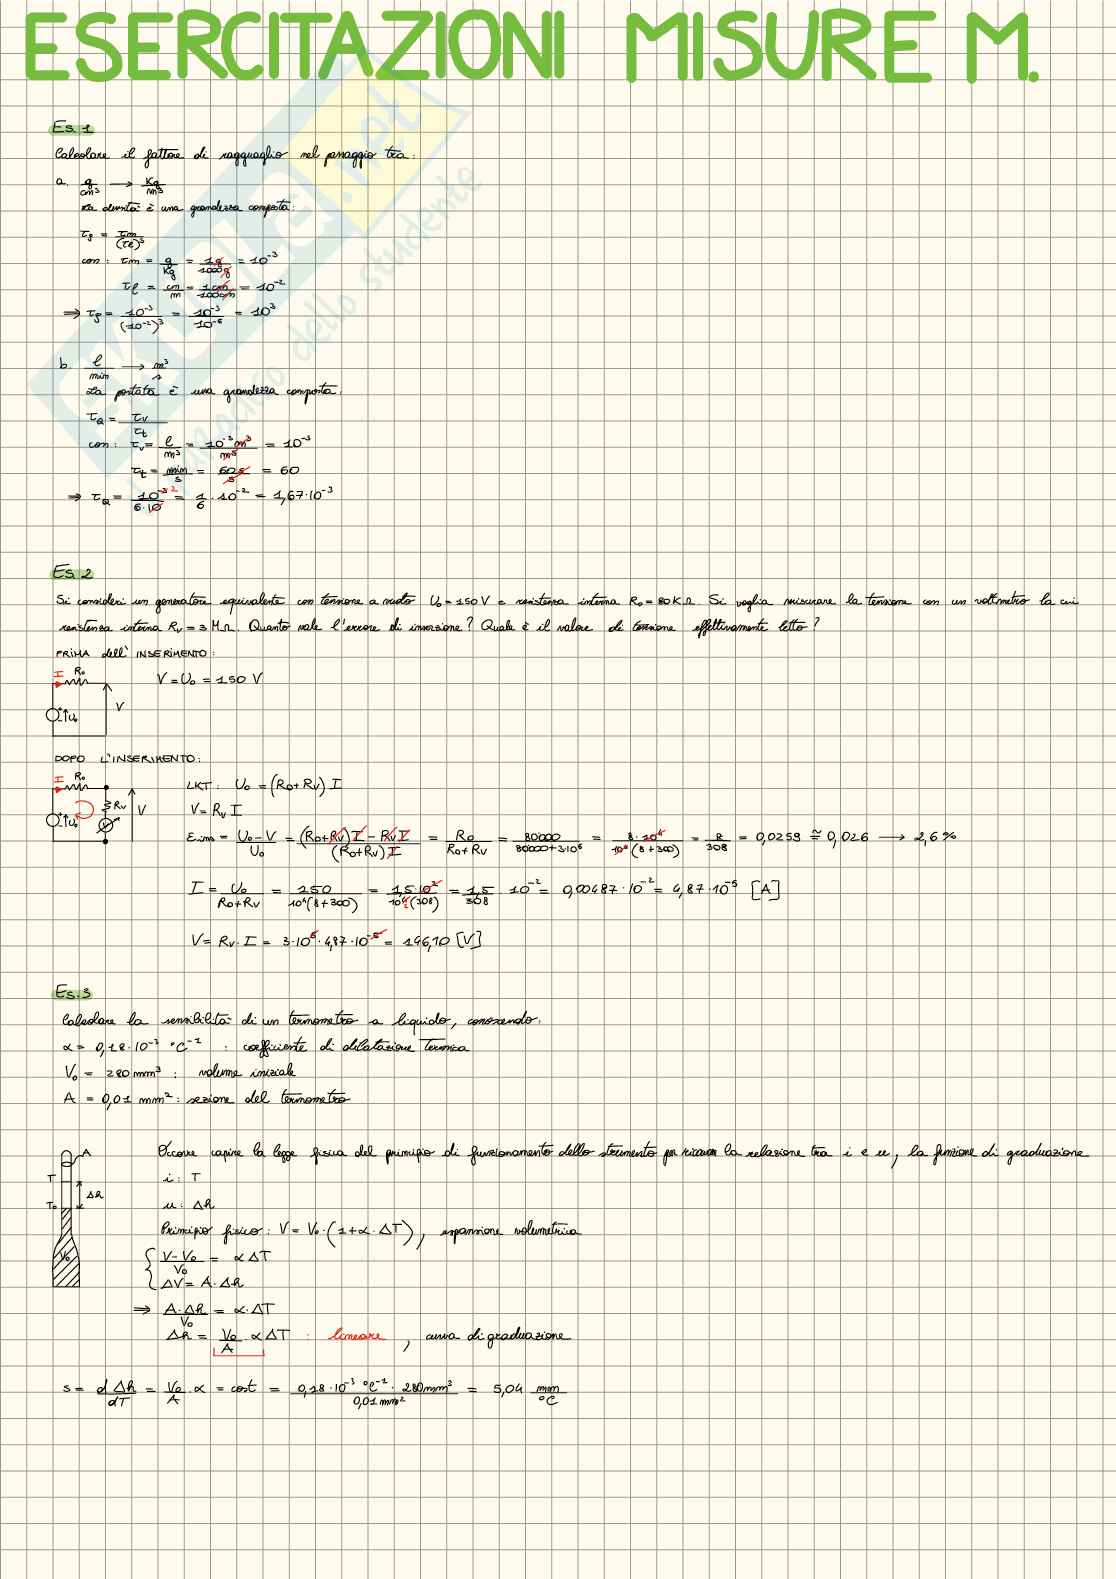 ESERCITAZIONI MISURE M.
Es. 1
Calcolare il fattore di ragguaglio nel passaggio tra:
a. g/cm³ → Kg/m³
La densità è una grandezza composta:
τρ = τm/(τℓ)³
con: τm = g/Kg = 1g/1000g = 10⁻³
τℓ = cm/m = 1cm/100cm = 10⁻²
⇒ τρ = 10⁻³/(10⁻²)³ = 10⁻³/10⁻⁶ = 10³
b. ℓ/min → m³/s
La portata è una grandezza composta.
τQ = τv/τt
con: τv = ℓ/m³ = 10⁻³m³/m³ = 10⁻³
τt = min/s = 60s/s = 60
⇒ τQ = 10⁻³ ²/6·10 = 1/6 · 10⁻² = 1,67·10⁻³
Es. 2
Si consideri un generatore equivalente con tensione a vuoto U₀ = 150 V e resistenza interna R₀ = 80 KΩ. Si voglia misurare la tensione con un voltmetro la cui
resistenza interna Rv = 3 MΩ. Quanto vale l'errore di inserzione? Quale è il valore di tensione effettivamente letto?
PRIMA dell' INSERIMENTO:
I R₀
V = U₀ = 150 V
V
U₀
DOPO L'INSERIMENTO:
I R₀
LKT: U₀ = (R₀+Rv) I
Rv V
V = Rv I
U₀ V
εins = U₀-V/U₀ = (R₀+Rv)I - RvI/(R₀+Rv)I = R₀/R₀+Rv = 80000/80000+3·10⁶ = 8·10⁴/10⁴(8+300) = 8/308 = 0,0259 ≅ 0,026 → 2,6%
I = U₀/R₀+Rv = 150/10⁴(8+300) = 1,5·10²/10⁴(308) = 1,5/308 10⁻² = 0,00487·10⁻² = 4,87·10⁻⁵ [A]
V = Rv·I = 3·10⁵·4,87·10⁻⁵ = 146,10 [V]
Es. 3
Calcolare la sensibilità di un termometro a liquido, conoscendo:
α = 0,18·10⁻³ °C⁻¹ : coefficiente di dilatazione termica
V₀ = 280 mm³ : volume iniziale
A = 0,01 mm² : sezione del termometro
A
Occorre capire la legge fisica del principio di funzionamento dello strumento per ricavare la relazione tra i e u, la funzione di graduazione
T
i: T
Δh
T₀
u: Δh
Principio fisico: V = V₀·(1+α·ΔT), espansione volumetrica
V₀
V-V₀/V₀ = αΔT
ΔV = A·Δh
⇒ A·Δh/V₀ = α·ΔT
Δh = V₀/A αΔT : lineare, curva di graduazione
s = dΔh/dT = V₀/A·α = cost = 0,18·10⁻³ °C⁻¹· 280mm³/0,01mm² = 5,04 mm/°C